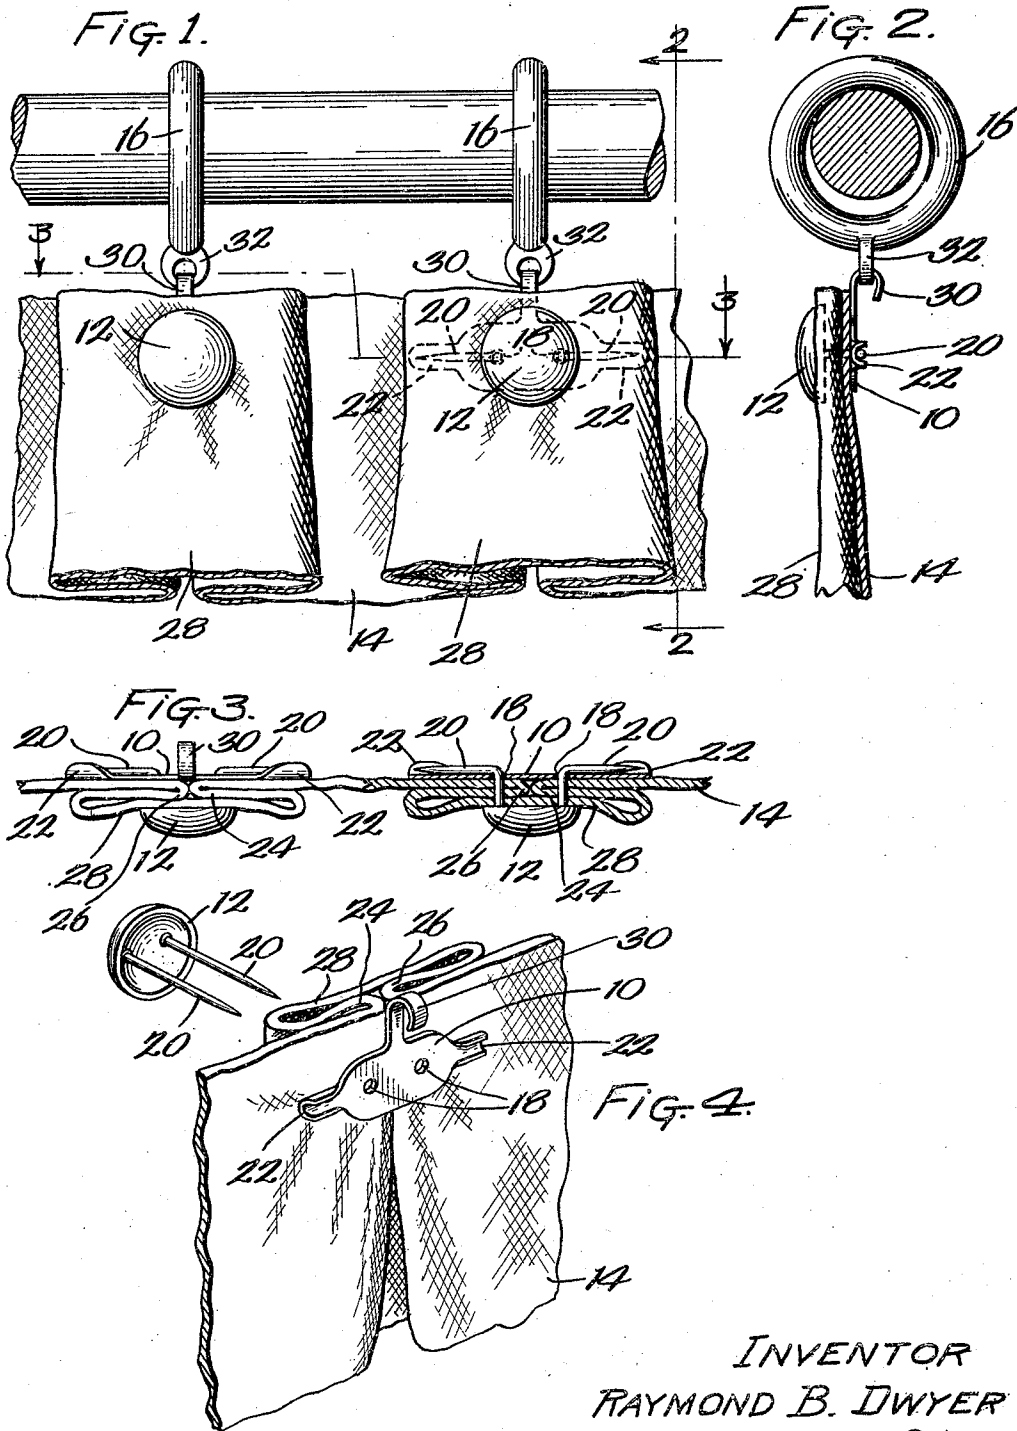 Fig. 1.
Fig. 2.
2
16
16
16
3
30
32
30
32
32
30
3
12
20
18
20
20
22
12
22
22
12
10
28
14
28
14
28
2
Fig. 3.
20
10
30
20
22
20
18
10
18
20
22
22
28
26
12
24
22
26
12
24
28
14
12
20
20
28
24
26
30
10
22
18
22
Fig. 4.
14
INVENTOR
RAYMOND B. DWYER